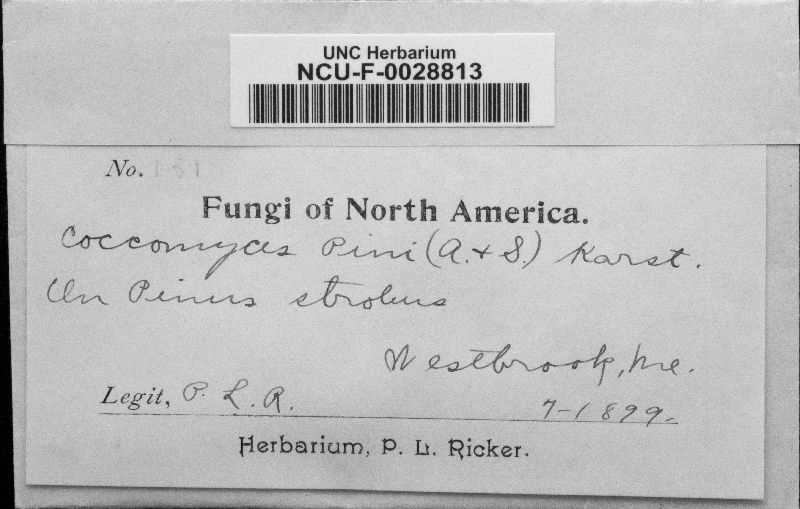 UNC Herbarium
NCU-F-0028813
No. 151
Fungi of North America.
Coccomyces Pini (A. & S.) Karst.
On Pinus strobus
Westbrook, Me.
Legit, P. L. R.
7-1899.
Herbarium, P. L. Ricker.